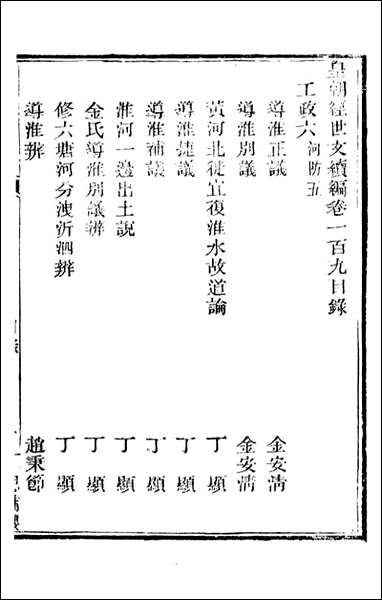 皇朝經世文續編卷一百九目錄
工政六河防五
導淮正議 金安清
導淮別議 金安清
黃河北徙宜復淮水故道論 丁顯
導淮捷議 丁顯
導淮補議 丁顯
淮河一邊出土說 丁顯
金氏導淮別議辨 丁顯
修六塘河分洩沂泗辨 丁顯
導淮辨 趙秉節